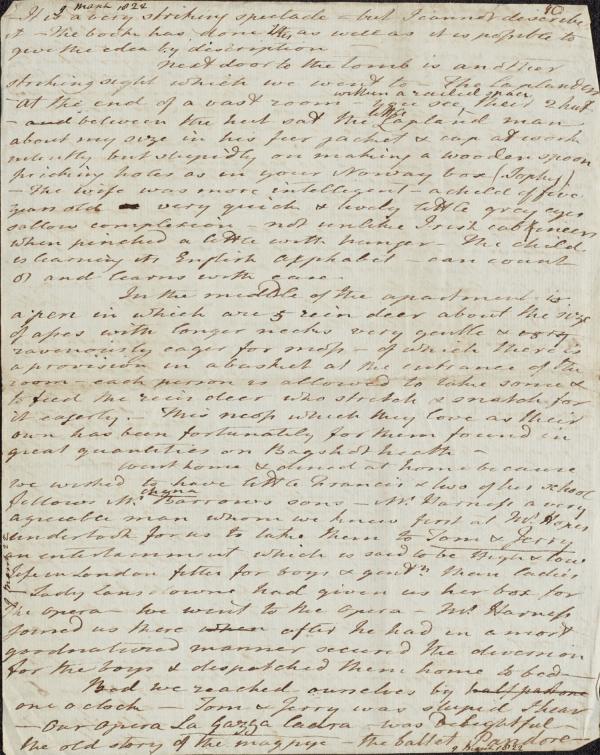 9 March 1822
10
It is a very striking spectacle - but I cannot describe
it - The book has done this as well as it is possible to
give the idea by discription -
Next door to the tomb is another
striking sight which we went to - The Laplanders
within a railed space
- At the end of a vast room - you see their 2 huts
- and between the hut sat the little Lapland man
about my size in his feer jacket & cap at work
intently but stupidly on making a wooden spoon
pricking holes as in your Norway box (Sophy)
- The wife was more intelligent - a child of five
years old - very quick & lively little grey eyes
sallow complexion - not unlike Irish cabineers
when pinched a little with hunger - The child
is learning its English Alphabet - can count
8 and learns with ease -
In the middle of the apartment is
a pen in which are 5 rein deer about the size
of apes with longer necks very gentle & very
ravenously eager for moss - of which there is
a provision in a basket at the entrance of the
room - each person is allowed to take some &
to feed the rein deer who stretch & snatch for
it eagerly - This moss which they love as their
own has been fortunately for them found in
great quantities on Bagshot heath -
Went home & dined at home because
we wished to have little Francis & two of his school
fellows Mr. China Barrows sons - Mr Harness a very
agreeable man whom we knew first at Mrs. Hopes
undertook for us to take them to Tom & Jerry
an entertainment which is said to be High & low
life in London fitter for boys & gentn than ladies
- Lady Lansdowne had given us her box for
the opera - we went to the Opera - Mr Harness
joined us there when after he had in a most
goodnatured manner secured the diversion
for the boys & dispatched them home to bed -
Bed we reached ourselves by half past one
one o clock - Tom & Jerry was stupid I hear
- Our Opera La Gazza Ladra - was delightful -
the old story of the magpye - the ballet Pandore -
9 March 1822